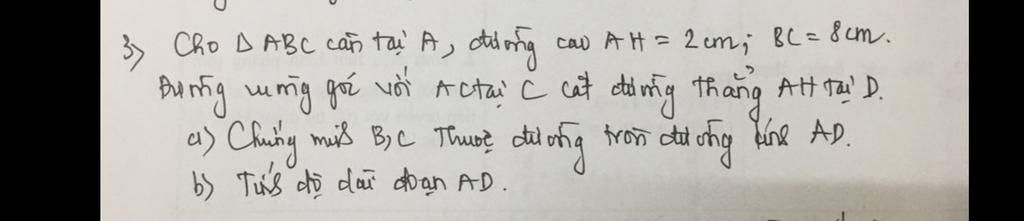 3) Cho Δ ABC cân tại A, đường cao AH = 2cm; BC = 8cm.
Đường vuông góc với AC tại C cắt đường thẳng AH tại D.
a) Chứng minh B,C thuộc đường tròn đường kính AD.
b) Tính độ dài đoạn AD.